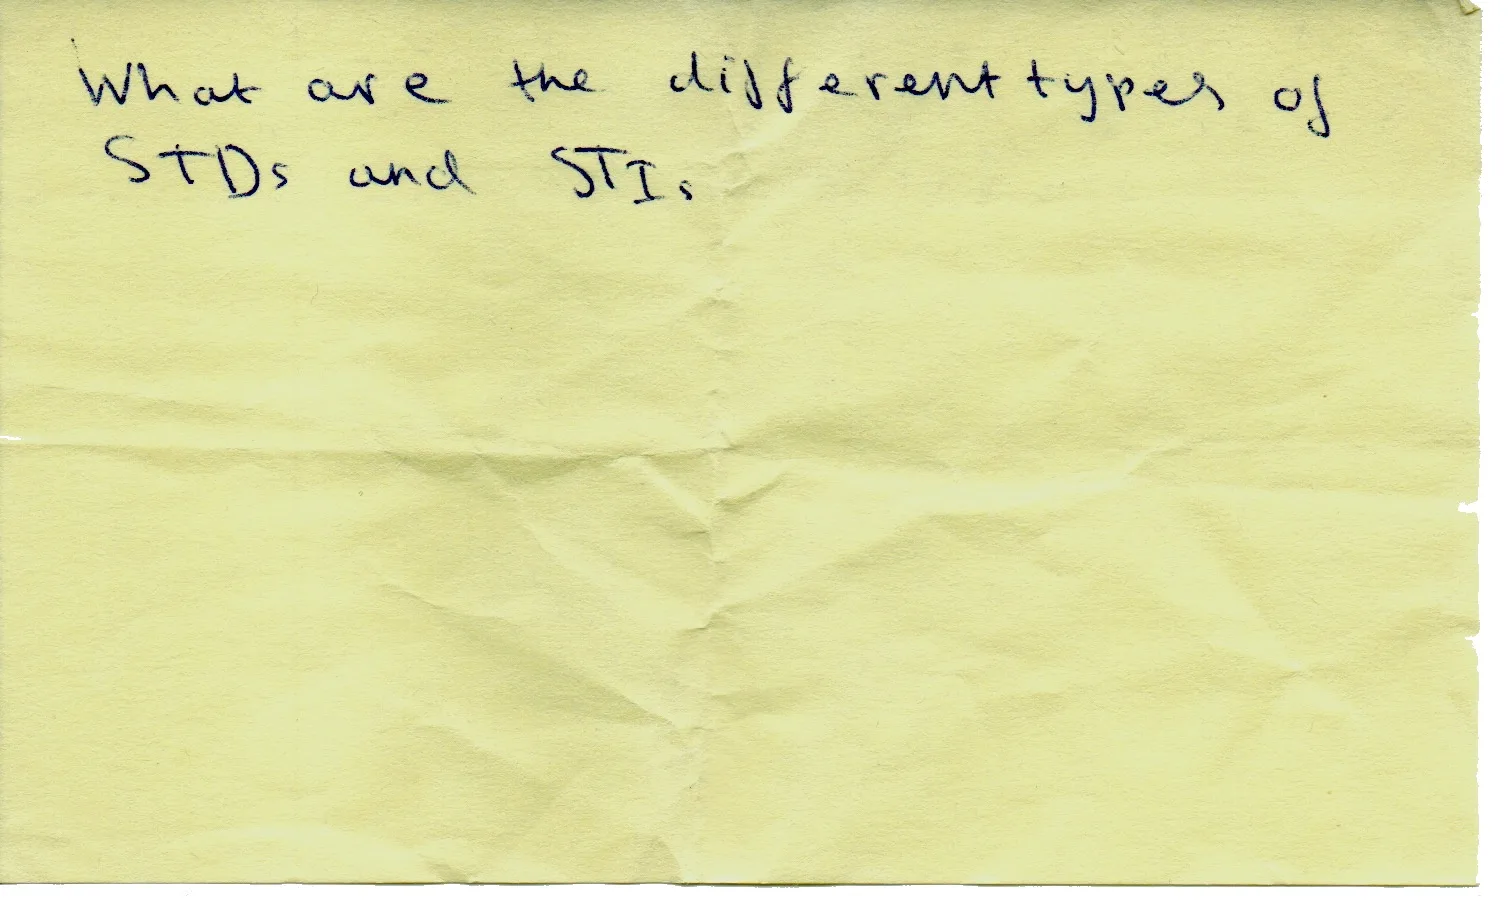 What are the different types of
STDs and STIs